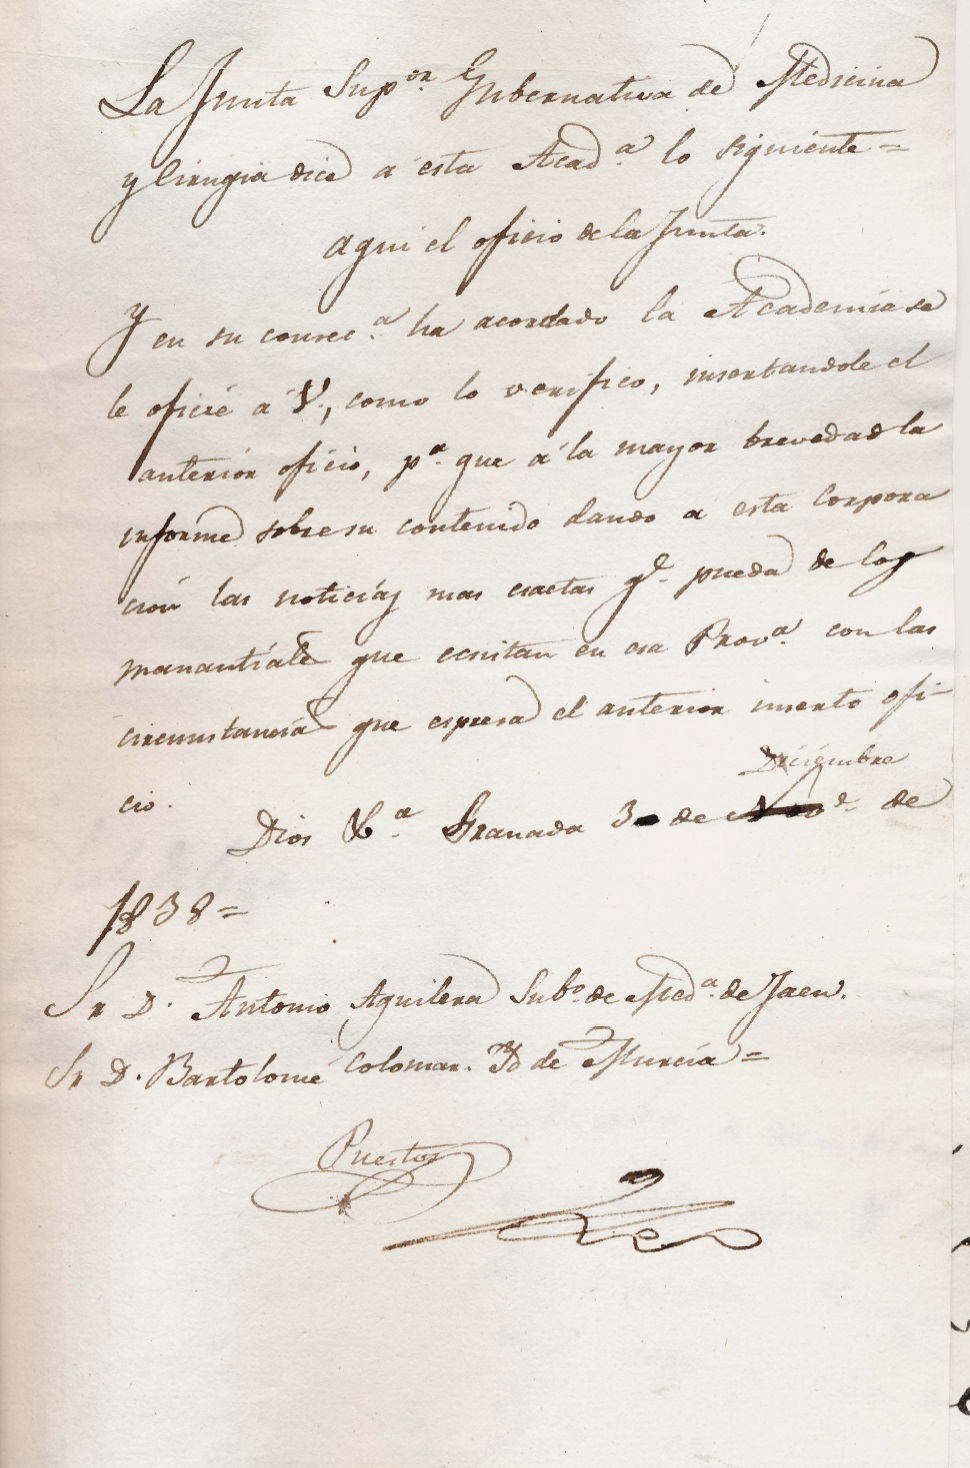 La Junta Sup.or Gubernativa de Medicina
y Cirugia dice a esta Acad.a lo siguiente =
aqui el oficio de la Junta.
Y en su consec.a ha acordado la Academia se
le oficie á V., como lo verifico, insertandole el
anterior oficio, p.a que á la mayor brevedad la
informe sobre su contenido dando a esta Corpora
cion las noticias mas esactas q.e pueda de los
manantiales que ecsitan en esa Prov.a con las
circunstancias que espresa el anterior inserto ofi-
cio.
Diciembre
Dios &.a Granada 3 de de
1838 =
Sr D. Antonio Aguilera Sub.o de Med.a de Jaen.
Sr D. Bartolomé Colomar. Yd de Murcia =
Puestos